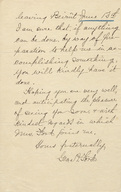 leaving Beirut June 13th
I am sure that, if anything
can be done by way of pub-
lication to help me in ac-
complishing something,
you will kindly have it
done.
Hoping you are very well,
and anticipating the pleasure
of seeing you soon, and
kindest regards in which
Mrs. joins me,
Yours fraternally,
Geo.